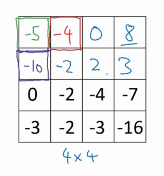 -5 -4 0 8
-10 -2 2. 3
0 -2 -4 -7
-3 -2 -3 -16
4x4